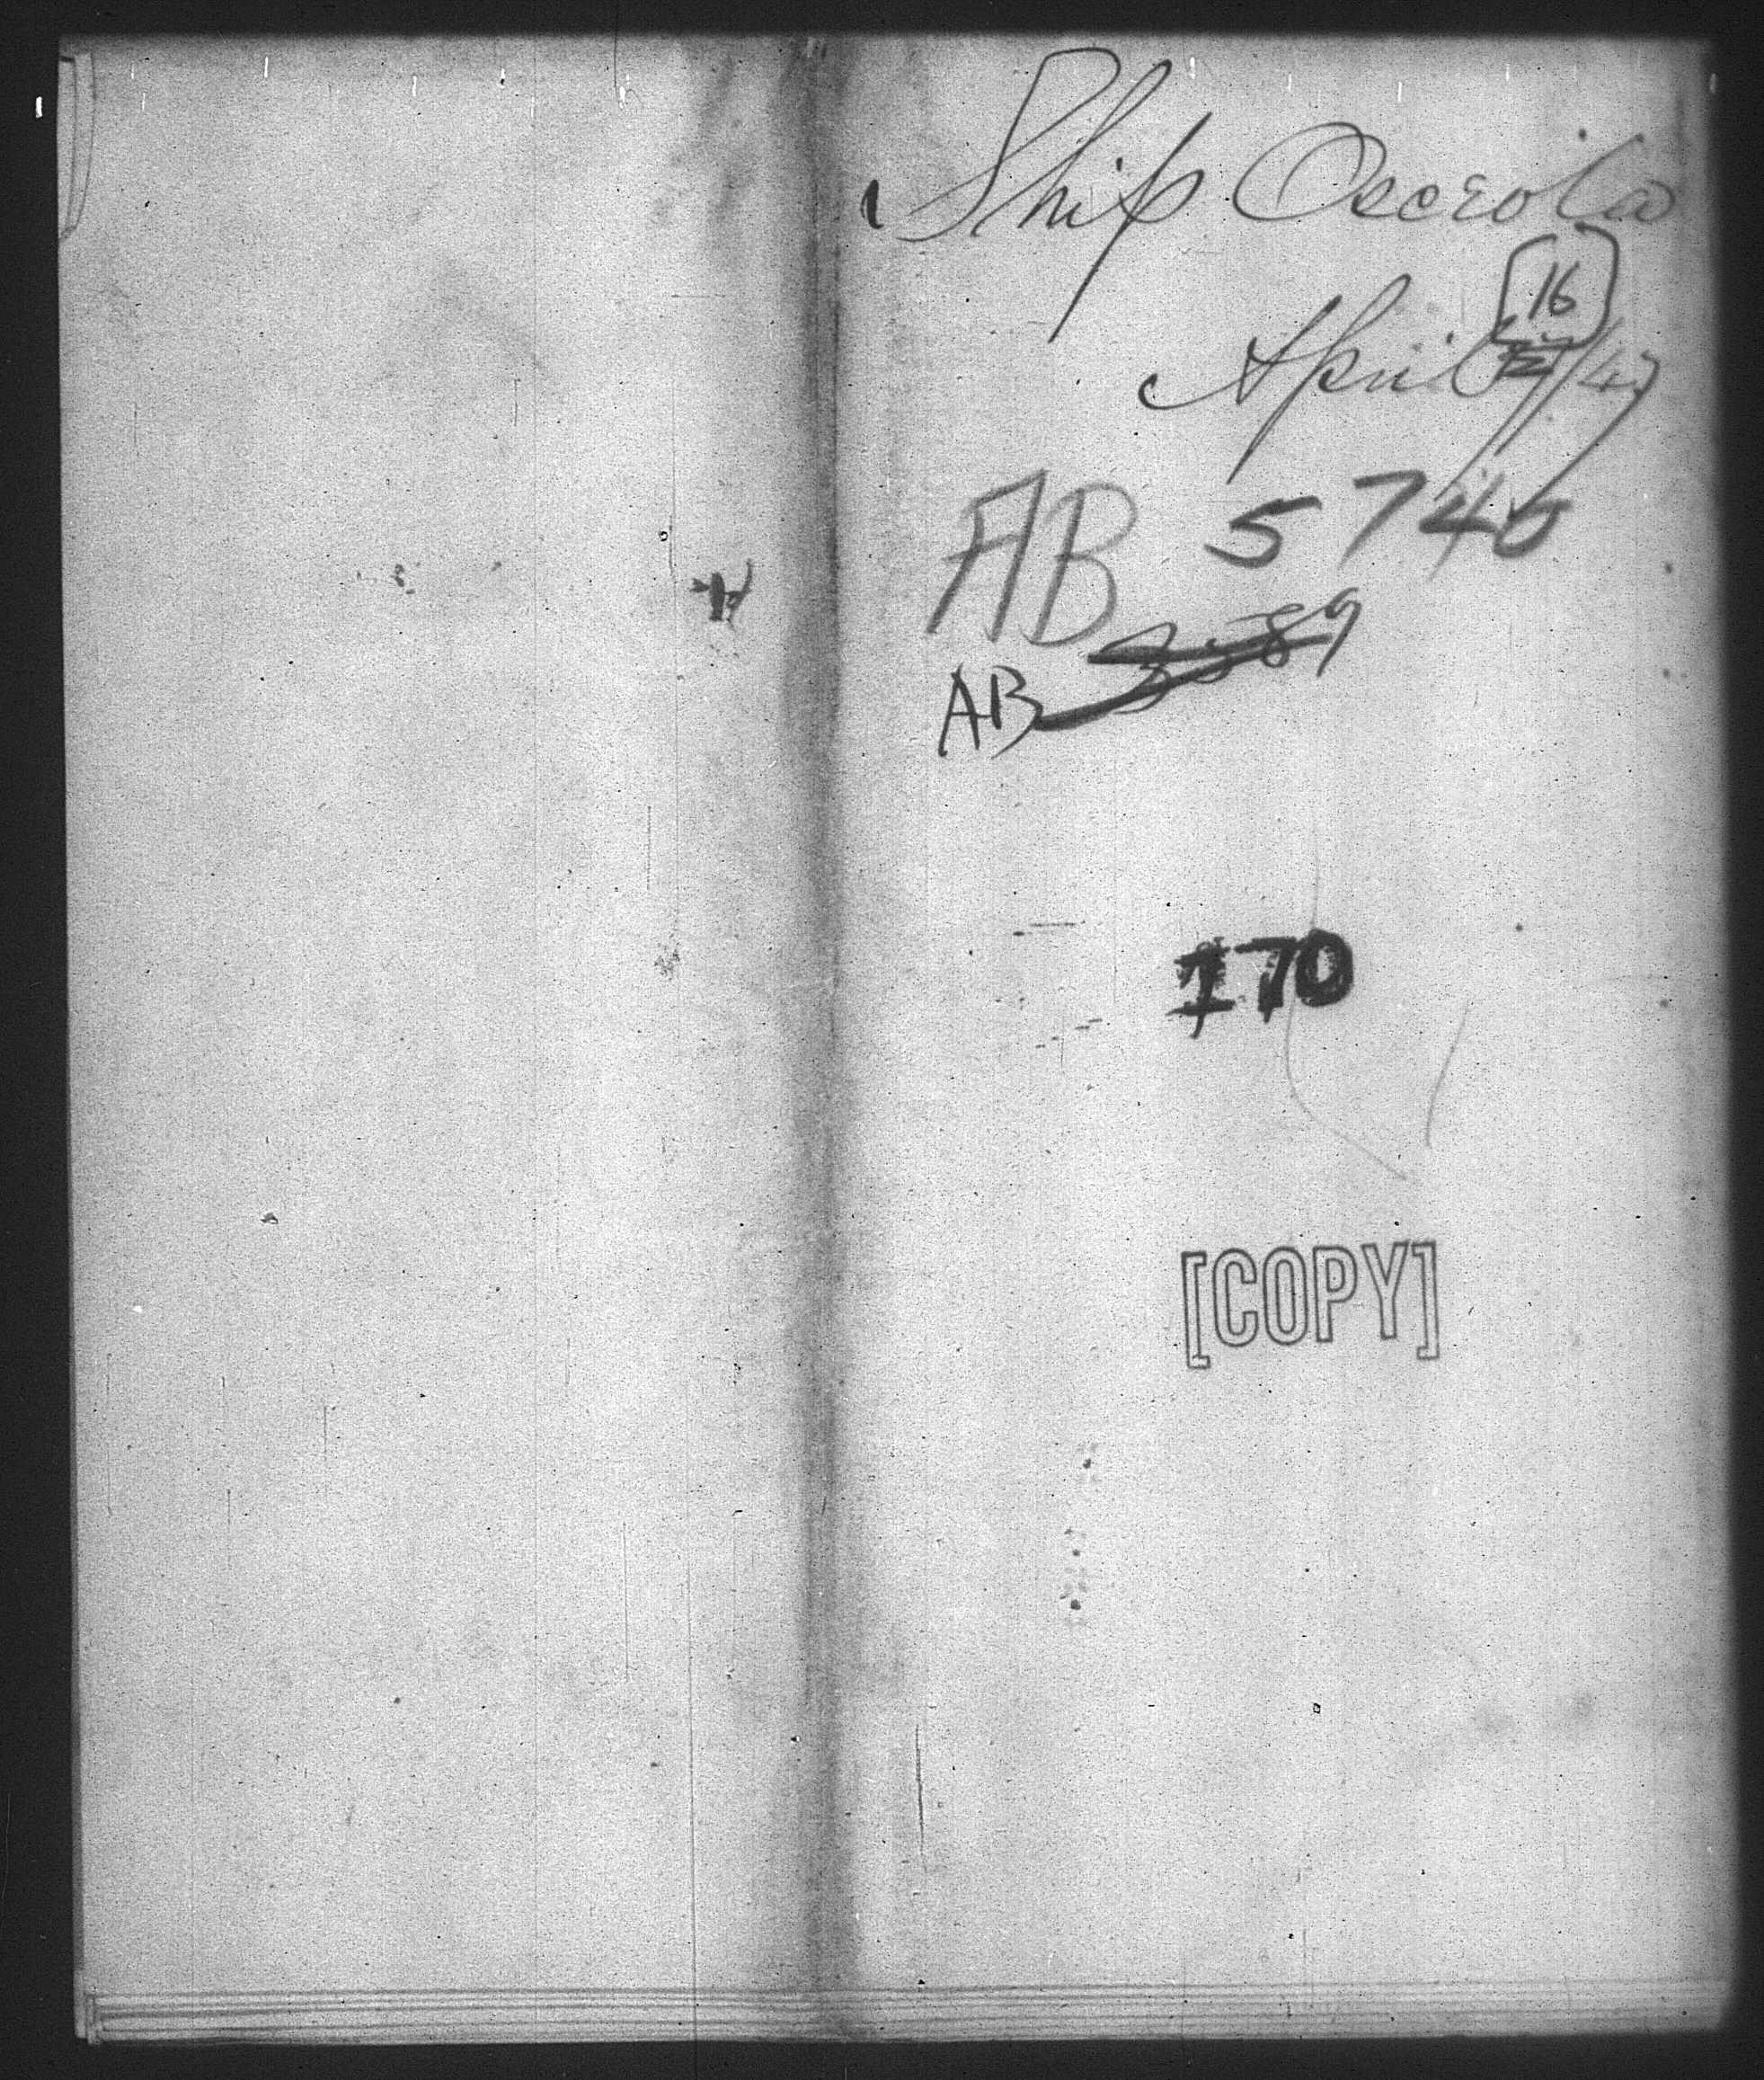 Ship Osceola
16
April 17/47
AB 5746
AB 3389
170
[COPY]